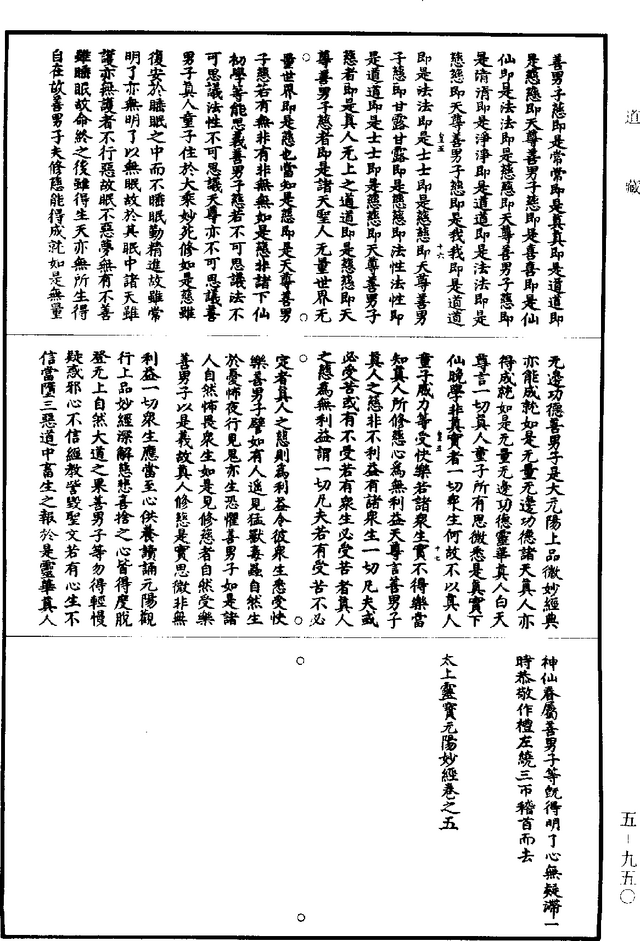 道藏
善男子慈即是常常即是真真即是道道即
是慈慈即天尊善男子慈即是善喜即是仙
仙即是法法即是慈慈即天尊善男子慈即
是清清即是淨淨即是道道即是法法即是
慈慈即天尊善男子慈即是我我即是道道
即是法法即是士士即是慈慈即天尊善男
子慈即甘露甘露即是慈慈即法性法性即
是道道即是士士即是慈慈即天尊善男子
慈者即是真人无上之道道即是慈慈即天
尊善男子慈者即是諸天聖人无量世界无
量世界即是慈也當知是慈即是天尊善男
子慈若有無非有非無無如是慈非諸下仙
初學等能思義善男子慈若不可思議法不
可思議法性不可思議天尊亦不可思議善
男子真人童子住於大衆妙死修如是慈雖
復安於睡眠之中而不睡眠勤精進故雖常
明了亦無明了以無眠故於其眠中諸天雖
護亦無護者不行惡故眠不惡夢無有不善
雖睡眠故命終之後雖得生天亦無所生得
自在故善男子夫修慈能得成就如是無量
无邊功德善男子是大元陽上品微妙經典
亦能成就如是无量无邊功德諸天真人亦
得成就如是无量无邊功德靈華真人白天
尊言一切真人童子所有思微悉是真實下
仙晚學非真實者一切衆生何故不以真人
童子威力等受快樂若諸衆生實不得樂當
知真人所修慈心為無利益天尊言善男子
真人之慈非不利益有諸衆生一切凡夫或
必受苦或有不受若有衆生必受苦者真人
之慈為無利益謂一切凡夫若有受苦不必
定者真人之慈則為利益令彼衆生悉受快
樂善男子譬如有人遥見猛獸毒蟲自然生
於憂怖夜行見鬼亦生恐懼善男子如是諸
人自然怖畏衆生如是見修慈者自然受樂
善男子以是義故真人修慈是實思微非無
利益一切衆生應當至心供養讀誦元陽觀
行上品妙經深解慈悲喜捨之心皆得度脫
登无上自然大道之果善男子等勿得輕慢
疑惑邪心不信經教訾毀聖文若有心生不
信當墮三惡道中畜生之報於是靈華真人
神仙眷屬善男子等旣得明了心無疑滯一
時恭敬作禮左繞三帀稽首而去
太上靈寶元陽妙經卷之五
五-九五〇